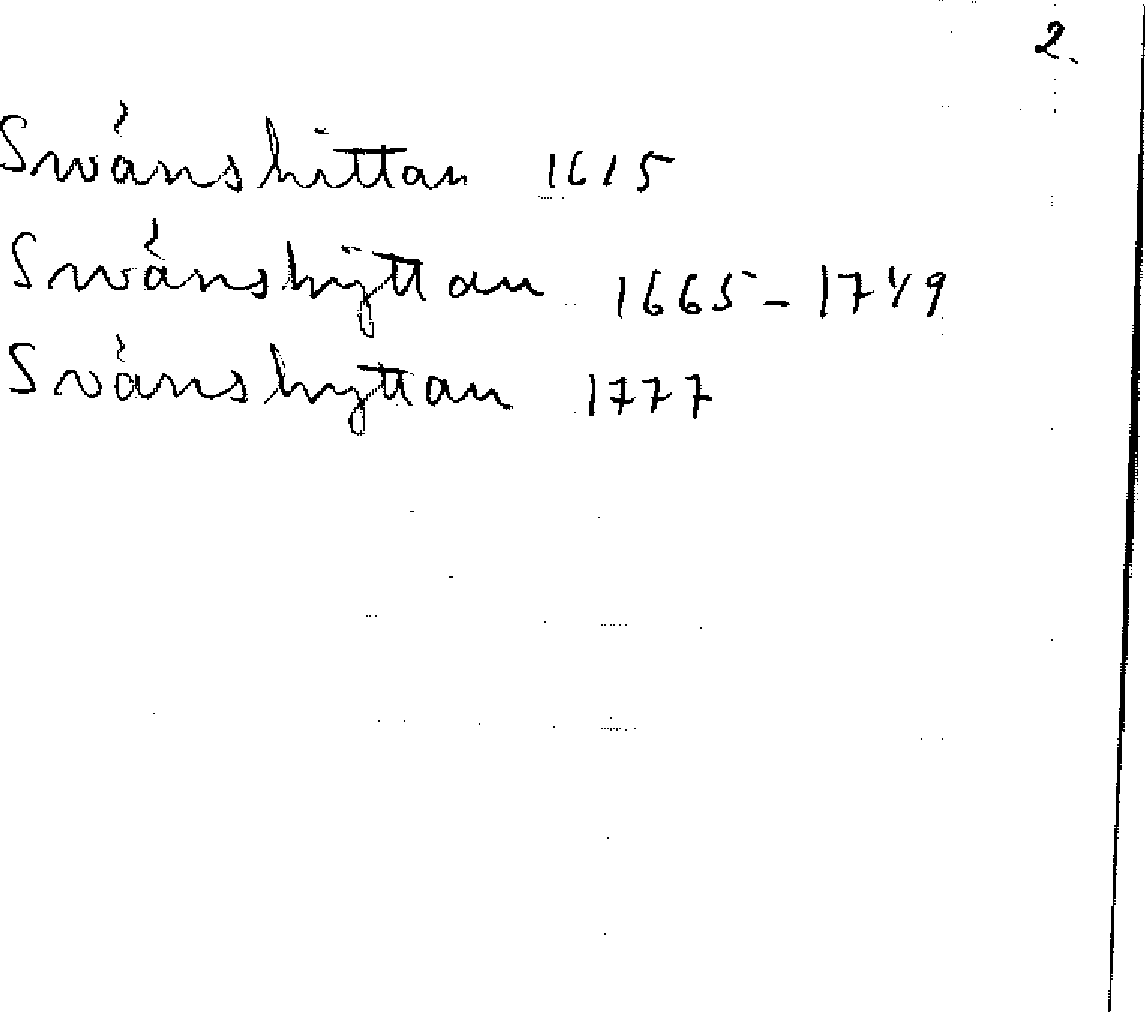 2.
Swånshittan 1615
Swånshÿttan 1665-1749
Svånshyttan 1777